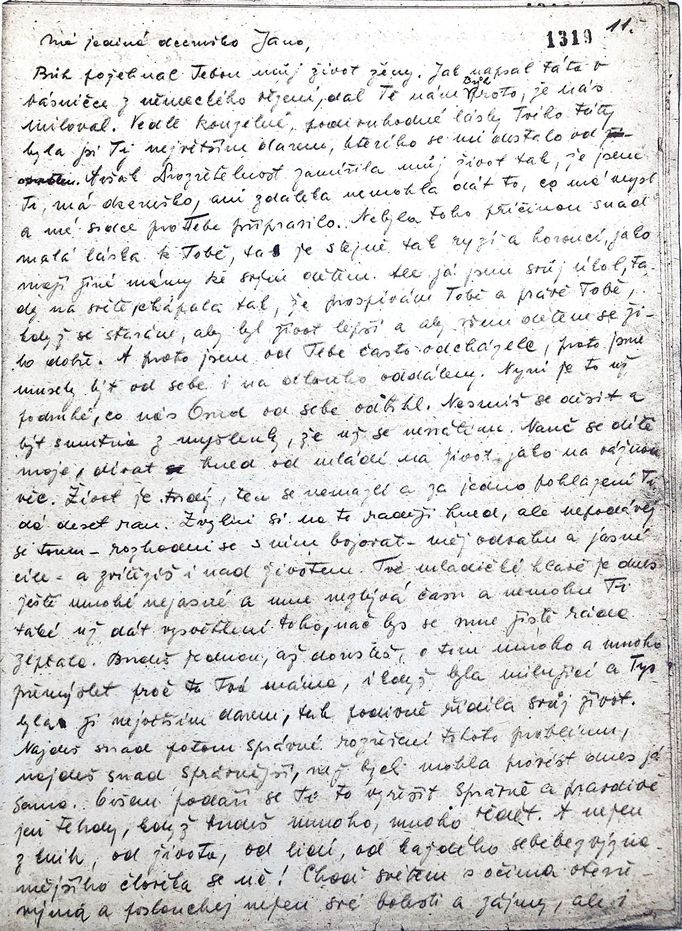 11.
1319
Má jediná dceruško Jano,
Bůh požehnal Tebou můj život ženy. Jak napsal táta v
básničce z německého vězení, dal Tě nám Bůh proto, že nás
miloval. Vedle kouzelné, podivuhodné lásky Tvého táty
byla jsi Ty největším darem, kterého se mi dostalo od
Avšak Prozřetelnost zaměřila můj život tak, že jsem
Ti, má dceruško, ani zdaleka nemohla dát to, co má mysl
a mé srdce pro Tebe připrasilo. Nebyla toho příčinou snad
malá láska k Tobě, ta je stejně tak ryzí a horoucí, jako
mají jiné mámy ke svým dětem. Ale já jsem svůj úkol, ta-
dy na světě, chápala tak, že prospívám Tobě a právě Tobě,
když se starám, aby byl život lepší a aby všem dětem se ži-
lo dobře. A proto jsem od Tebe často odcházela, proto jsme
musely být od sebe i na dlouho oddáleny. Nyní je to už
podruhé, co nás Osud od sebe odtrhl. Nesmíš se děsit a
být smutná z myšlenky, že už se nevrátím. Nauč se dítě
moje, dívat hned od mládí na život jako na vážnou
věc. Život je tvrdý, ten se nemazlí a za jedno pohlazení Ti
dá deset ran. Zvykni si na to raději hned, ale nepodávej
se tomu – rozhodni se s ním bojovat – měj odvahu a jasné
cíle – a zvítězíš i nad životem. Tvé mladičké hlavě je dnes
ještě mnohé nejasné a mně nezbývá času a nemohu Ti
také už dát vysvětlení toho, nač bys se mne jistě ráda
zeptala. Budeš jednou, až dorosteš, o tom mnoho a mnoho
přemýšlet proč to Tvá máma, i když byla milující a Tys
byla jí největším darem, tak podivně řídila svůj život.
Najdeš snad potom správné rozřešení tohoto problému,
najdeš snad správnější, než bych mohla provést dnes já
sama. Ovšem podaří se Ti to vyřešit správně a pravdivě
jen tehdy, když budeš mnoho, mnoho vědět. A nejen
z knih, od života, od lidí, od každého sebebezvýzna-
mějšího člověka se uč! Choď světem s očima otevře-
nýma a poslouchej nejen své bolesti a zájmy, ale i